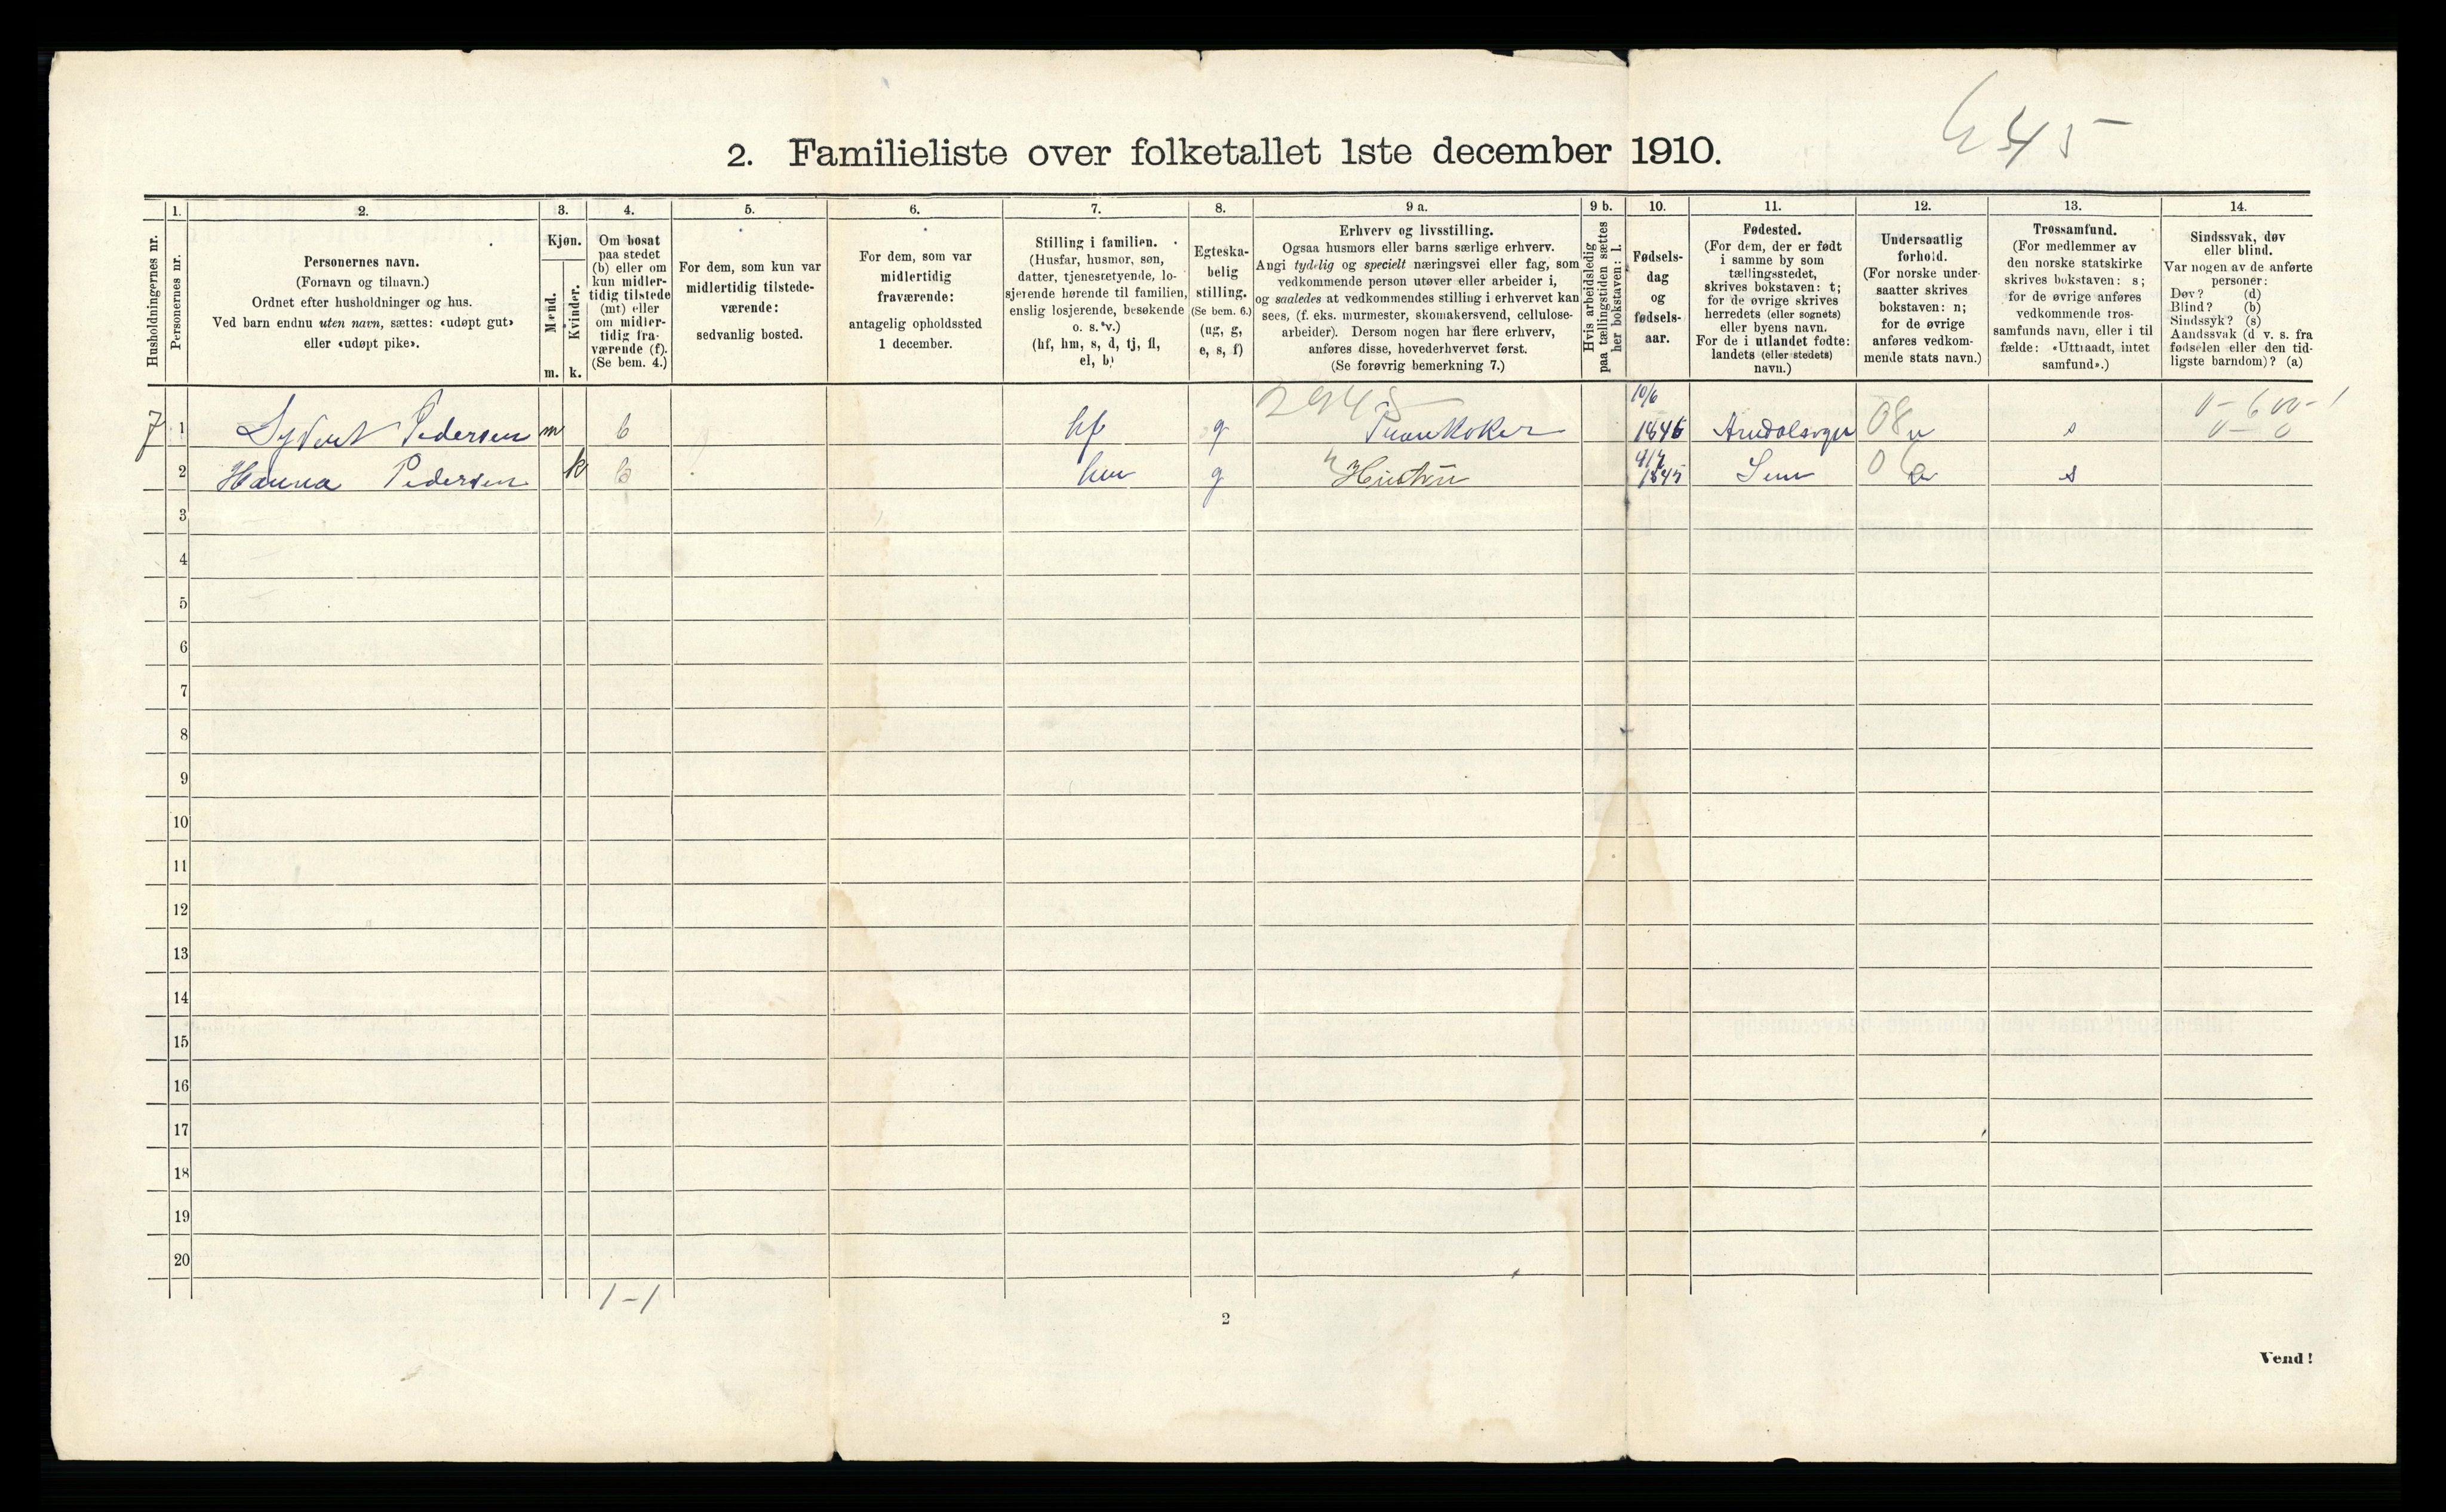 2. Familieliste over folketallet 1ste december 1910.
1. 2. 3. 4. 5. 6. 7. 8. 9 a. 9 b. 10. 11. 12. 13. 14.
Husholdningernes nr.
Personernes nr.
Personernes navn.
(Fornavn og tilnavn.)
Ordnet efter husholdninger og hus.
Ved barn endnu uten navn, sættes: «udøpt gut»
eller «udøpt pike».
Kjøn.
Mænd.
m.
Kvinder.
k.
Om bosat
paa stedet
(b) eller om
kun midler-
tidig tilstede
(mt) eller
om midler-
tidig fra-
værende (f).
(Se bem. 4.)
For dem, som kun var
midlertidig tilstede-
værende:
sedvanlig bosted.
For dem, som var
midlertidig
fraværende:
antagelig opholdssted
1 december.
Stilling i familien.
(Husfar, husmor, søn,
datter, tjenestetyende, lo-
sjerende hørende til familien,
enslig losjerende, besøkende
o. s. v.)
(hf, hm, s, d, tj, fl,
el, b)
Egteska-
belig
stilling.
(Se bem. 6.)
(ug, g,
e, s, f)
Erhverv og livsstilling.
Ogsaa husmors eller barns særlige erhverv.
Angi tydelig og specielt næringsvei eller fag, som
vedkommende person utøver eller arbeider i,
og saaledes at vedkommendes stilling i erhvervet kan
sees, (f. eks. murmester, skomakersvend, cellulose-
arbeider). Dersom nogen har flere erhverv,
anføres disse, hovederhvervet først.
(Se forøvrig bemerkning 7.)
Hvis arbeidsledig
paa tællingstiden sættes
her bokstaven: l.
Fødsels-
dag
og
fødsels-
aar.
Fødested.
(For dem, der er født
i samme by som
tællingsstedet,
skrives bokstaven: t;
for de øvrige skrives
herredets (eller sognets)
eller byens navn.
For de i utlandet fødte:
landets (eller stedets)
navn.)
Undersaatlig
forhold.
(For norske under-
saatter skrives
bokstaven: n;
for de øvrige
anføres vedkom-
mende stats navn.)
Trossamfund.
(For medlemmer av
den norske statskirke
skrives bokstaven: s;
for de øvrige anføres
vedkommende tros-
samfunds navn, eller i til
fælde: «Uttraadt, intet
samfund».)
Sindssvak, døv
eller blind.
Var nogen av de anførte
personer:
Døv? (d)
Blind? (b)
Sindssyk? (s)
Aandssvak (d v. s. fra
fødselen eller den tid-
ligste barndom)? (a)
10/6
7 1 Pedersen m b hf g Trankoker 1846 08 n s
2 Hanna Pedersen k b hm g Hustru 1845 Sem s
3
4
5
6
7
8
9
10
11
12
13
14
15
16
17
18
19
20
1-1
2
Vend!